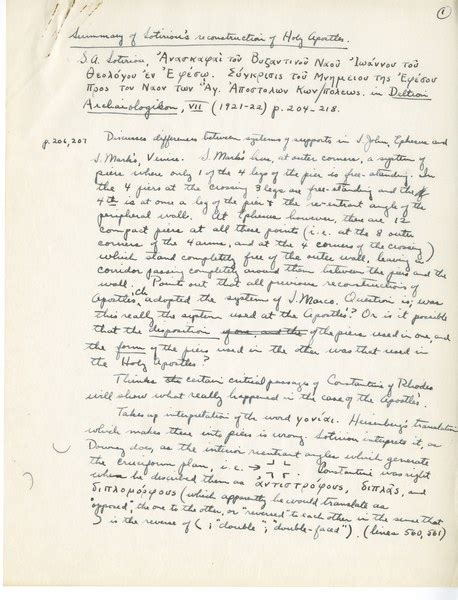 1
Summary of Sotiriou's reconstruction of Holy Apostles.
S.A. Sotiriou, Ἀνασκαφαὶ τοῦ Βυζαντινοῦ Ναοῦ Ἰωάννου τοῦ
Θεολόγου ἐν Ἐφέσῳ. Σύγκρισις τοῦ Μνημείου τῆς Ἐφέσου
προς τον Ναον των Ἁγ. Ἀποστολων Κων/πολεως. in Deltion
Archaiologikon, VII (1921-22) p. 204-218.
p. 206, 207 Discusses differences between systems of supports in S. John, Ephesus and
S. Mark's, Venice. S. Mark's has, at outer corners, a system of
piers where only 1 of the 4 legs of the pier is free-standing. In
the 4 piers at the crossing 3 legs are free-standing and the
4th is at once a leg of the pier & the re-entrant angle of the
peripheral wall. At Ephesus however, there are 12
compact piers at all these points (i.e. at the 8 outer
corners of the 4 arms, and at the 4 corners of the crossing)
which stand completely free of the outer wall, leaving a
corridor passing completely around them between the piers and the
wall. Points out that all previous reconstructions of
Apostles ch adopted the system of S. Marco. Question is; was
this really the system used at the Apostles? Or is it possible
that the disposition of one, and the of the piers used in one, and
the form of the piers used in the other was that used in
the Holy Apostles?
Thinks certain critical passages of Constantine of Rhodes
will show what really happened in the case of the Apostles.
Takes up interpretation of the word γονίαι. Heisenberg's translation
which makes these into piers is wrong. Sotiriou interprets it, as
Downey does, as the interior reentrant angles which generate
the cruciform plan, i.e. → Constantine was right
when he described them as ἀντιστρόφους, διπλᾶς, and
διπλομόρφους (which apparently he would translate as
"opposed", the one to the other, or "reversed" to each other in the sense that
) is the reverse of ( ; "double"; "double-faced"). (lines 560, 561)